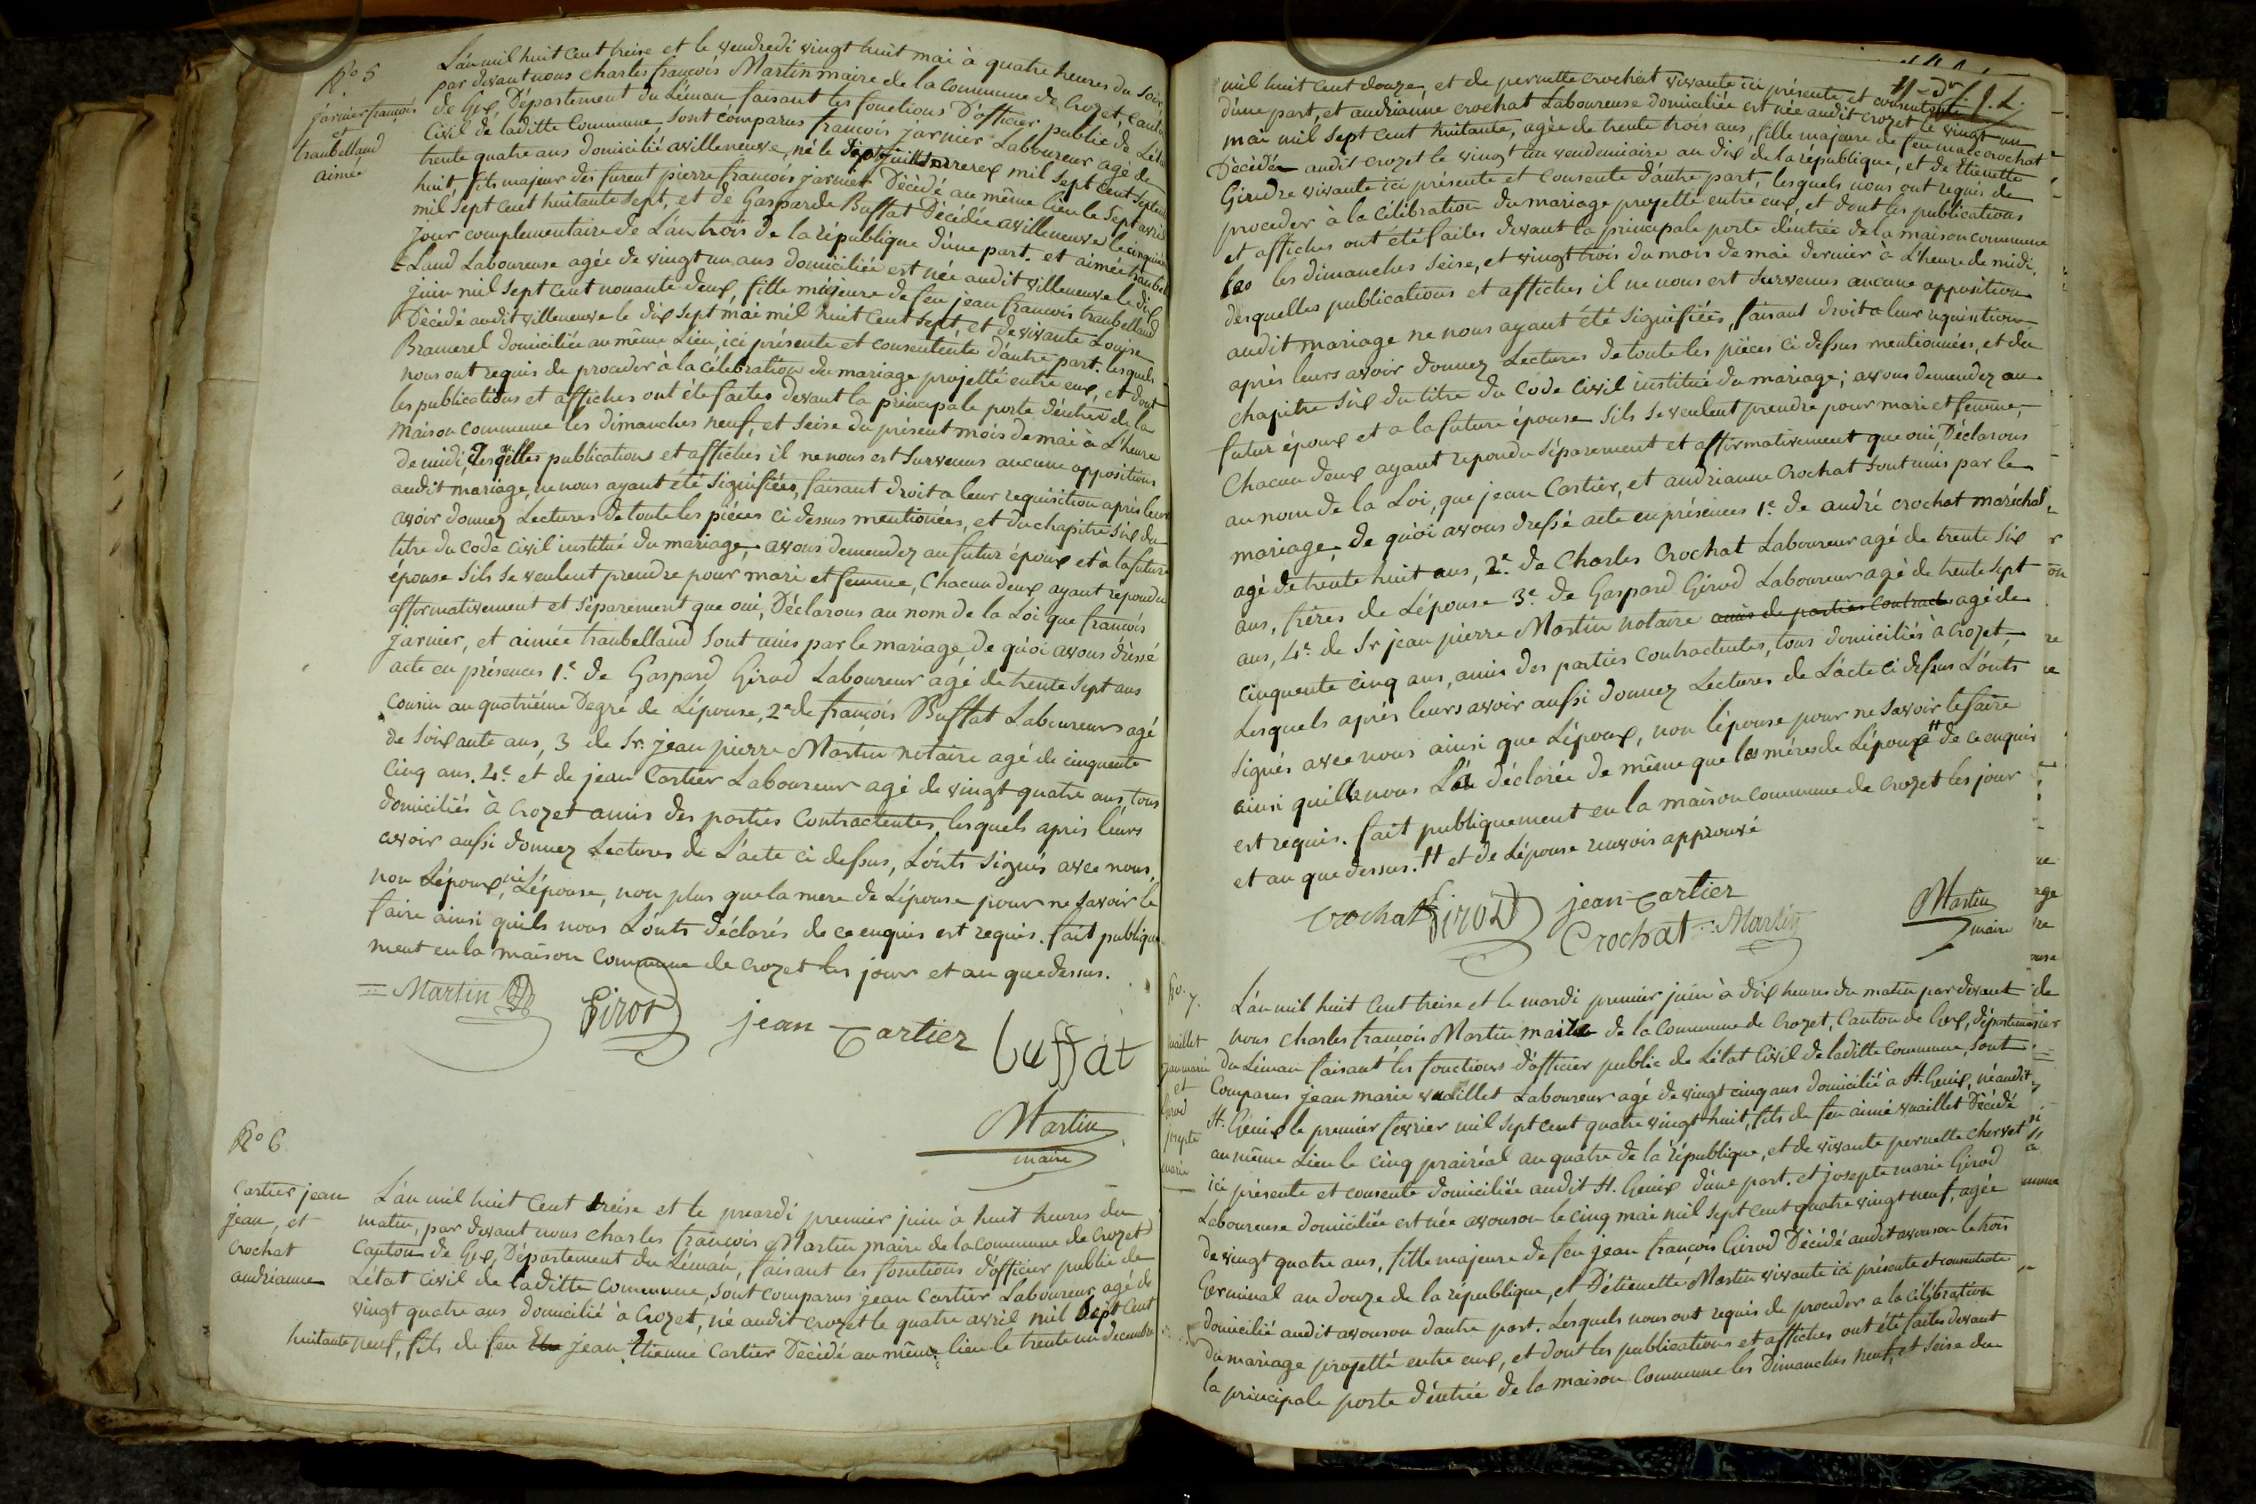 No 5
jarnier françois
et
traubelland
aimée
L'an mil huit cent treise et le vendredi vingt huit mai à quatre heures du soir
par devant nous charles françois Martin maire de la commune de Crozet, canton
de Gex, Département du Léman faisant les fonctions D'officier public de L'état
Civil de laditte Commune sont comparus françois jarnier Laboureur agé de
trente quatre ans domicilié a villeneuve, né le mil sept cent septante
huit, fils majeur des furent pierre francois jarnier Décédé au même lieu le Sept avril
mil sept cent huitante sept, et de Gasparde Buffat Décédée a villeneuve le cinquième
jour complementaire de L'an trois de la république d'une part. et aimée traubel
Land Laboureuse agée de vingt un ans domiciliée est née audit villeneuve le dix
juin mil sept cent nouante deux fille majeure de feu jean francois traubelland
Décédé audit villeneuve le dix sept mai mil huit cent sept, et de vivante Louise
Bramerel domiciliée au même Lieu, ici présente et consentente d'autre part. lesquels
nous ont requis de proceder à la célebration du mariage projetté entre eux, et dont
les publications et affiches ont été faites devant la principale porte d'entrée de la
maison commune les dimanches neuf, et seise du présent mois de mai à L'heure
de midi, desqu'elles publications et affiches il ne nous est survenus aucune oppositions
audit mariage, ne nous ayant été signifiées, faisant droit a leur requisition après leur
avoir donnez Lectures de toute les pièces ci dessus mentionées, et du chapitre six du
titre du Code Civil institué du mariage, avons demendez au futur époux et à la future
épouse s'ils se veulent prendre pour mari et femme, Chacun deux ayant repondu
affirmativement et séparement que oui, Déclarons au nom de la Loi que francois
jarnier, et aimée traubelland sont unis par le mariage, De quoi avons dressé
acte en présences 1.e de Gaspard Girod Laboureur agé de trente sept ans
cousin au quatriéme Degré de L'épouse, 2e de françois Buffat Laboureurs agé
de soixante ans, 3 de Sr. jean pierre Martin notaire agé de cinquente
cinq ans. 4.e et de jean Cartier Laboureur agé de vingt quatre ans, tous
domiciliés à Crozet amis des parties Contractentes, lesquels après leurs
avoir aussi donnez Lectures de L'acte ci dessus, L'onts signés avec nous,
non L'époux, ni L'épouse, non plus que la mere de L'épouse pour ne savoir le
faire ainsi qu'ils nous L'onts déclarés de ce enquis est requis. fait publique
ment en la maison Commune de Crozet les jour et an que dessus.
Martin
Girod
jean Cartier
buffat
Martin
maire
No 6
Cartier jean
jean, et
Crochat
andrianne
L'an mil huit Cent treise et le mardi premier juin à huit heures du
matin, par devant nous charles françois Martin maire de la commune de Crozet
Canton de Gex, Département du Léman, faisant les fonctions d'officier public de
L'état Civil de laditte Commune, sont comparus jean Cartier Laboureur agé de
vingt quatre ans domicilié à Crozet, né audit crozet le quatre avril mil Sept Cent
huitante neuf, fils de feu jean Etienne Cartier Décédé au même lieu le trente un decembre
mil huit cent douze, et de pernette crochat vivante ici présente et consentente
d'une part, et andrianne crochat Laboureuse domiciliée est née audit crozet le vingt un
mai mil sept cent huitante, agée de trente trois ans, fille majeure de feu marc crochat
Décédée audit crozet le vingt un vendemiaire an dix de la république, et de Etienette
Girodre vivante ici présente et consente d'autre part, lesquels nous ont requis de
proceder à la Célébration du mariage projetté entre eux, et dont les publications
et affiches ont été faites devant la principale porte d'entrée de la maison commune
les dimanches seise, et vingt trois du mois de mai dernier à L'heure de midi,
desquelles publications et affiches il ne nous est survenus aucune opposition
audit mariage ne nous ayant été signifiées, faisant droit a leur requisition
après leurs avoir donnez Lectures de toute les pièces ci dessus mentionnées, et du
chapitre six du titre du Code Civil institué du mariage; avons demendez au
futur époux et a la future épouse s'ils se veulent prendre pour mari et femme,
Chacun deux ayant repondu séparement et affirmativement que oui, Déclarons
au nom de la Loi, que jean Cartier, et andrianne Crochat sont unis par le
mariage, De quoi avons dressé acte en présences 1.e de andré crochat maréchal
agé de trente huit ans, 2.e de Charles Crochat Laboureur agé de trente six
ans, frères de L'épouse 3.e de Gaspard Girod Laboureur agé de trente sept
ans, 4.e de Sr jean pierre Martin notaire amis de parties Contract agé de
cinquente cinq ans, amis des parties contractentes, tous domiciliés à crozet,
Lesquels après leurs avoir aussi donnez Lectures de L'acte ci dessus L'onts
signés avec nous ainsi que L'époux, non l'épouse pour ne savoir le faire
ainsi quelle nous L'a déclarée de même que les mères de L'époux # de ce enquis
est requis. fait publiquement en la maison commune de crozet les jour
et an que dessus. # et de L'épouse renvois approuvé
Crochat Girod jean Cartier
Crochat Martin
Martin
maire
No. 7.
vuaillet
jean marie
et
Girod
josepte
marie
L'an mil huit Cent treise et le mardi premier juin à dix heures du matin par devant
nous charles francois Martin maire de la Commune de Crozet, Canton de Gex, département
du Léman faisant les fonctions d'officier public de L'état Civil de laditte Commune, sont
Comparus jean marie vuaillet Laboureur agé de vingt cinq ans domicilié a St. Genix, né audit
St. Genix le premier fevrier mil sept cent quatre vingt huit, fils de feu aimé vuaillet Décédé
au même Lieu le cinq prairéal an quatre de la république, et de vivante pernette chervet
ici présente et consente domiciliée audit St. Genix d'une part. et josepte marie Girod
Laboureuse domiciliée est née avouson le cinq mai mil sept cent quatre vingt neuf, agée
de vingt quatre ans, fille majeure de feu jean françois Girod Décédé audit avouson le trois
Germinal an douze de la république, et D'étienette Martin vivante ici présente et consentente
domicilié audit avouson d'autre part. Lesquels nous ont requis de proceder a la célibration
du mariage projetté entre eux, et dont les publications et affiches ont été faites devant
la principale porte d'entrée de la maison Commune les Dimanches neuf, et seise du